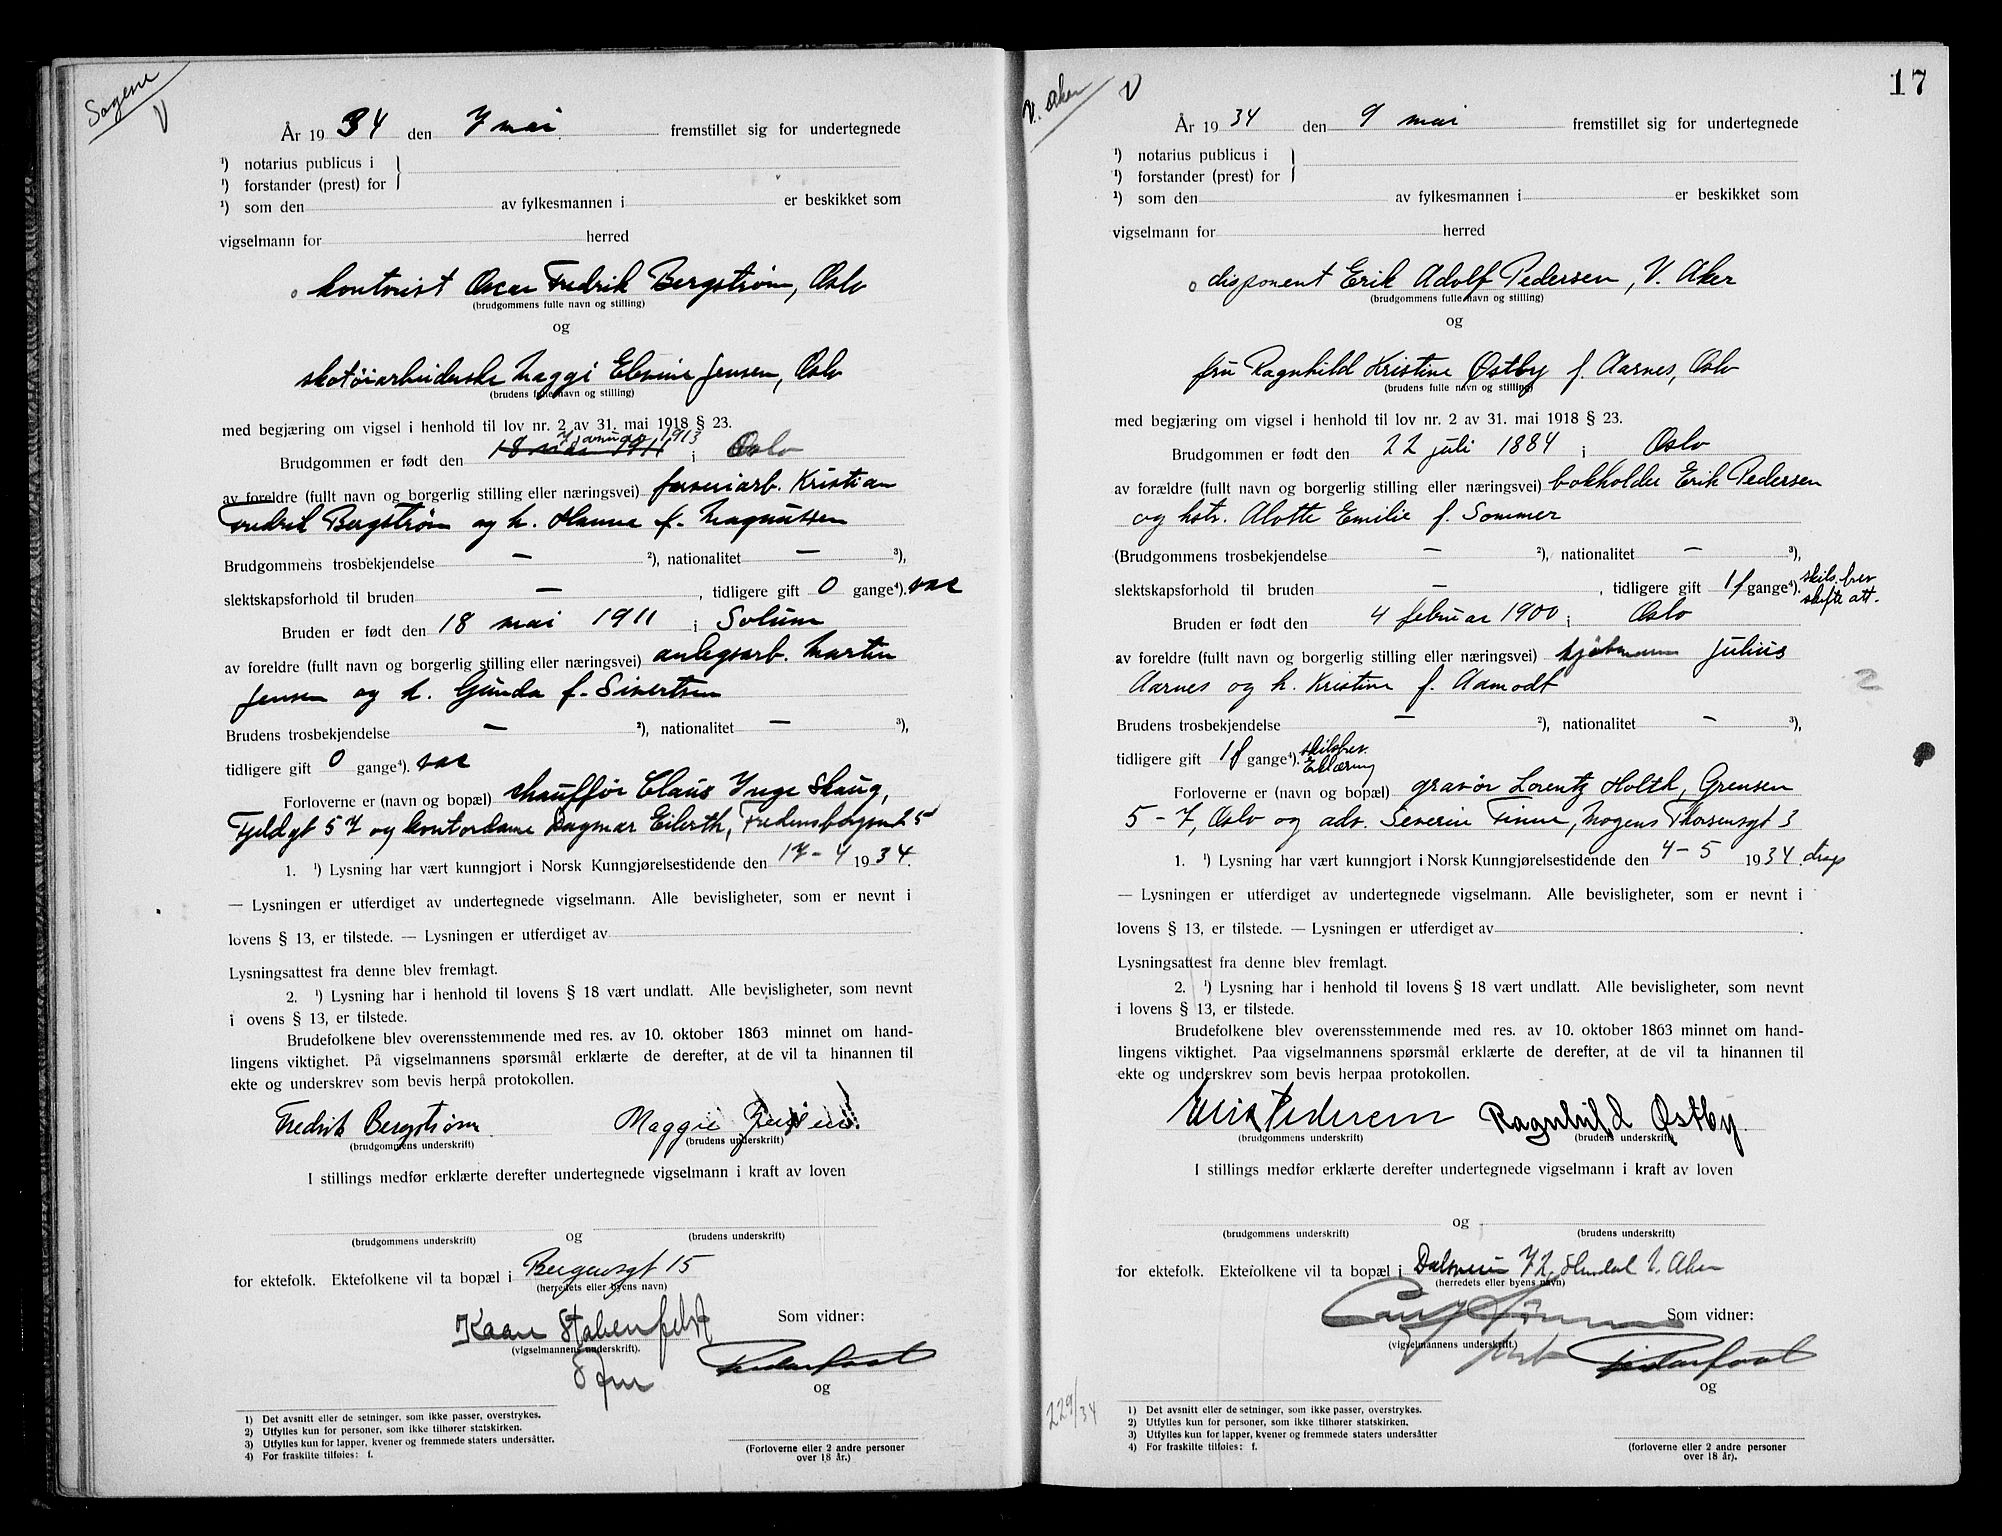 Sagene
V
År 1934 den 7 mai fremstillet sig for undertegnede
¹) notarius publicus i
¹) forstander (prest) for
¹) som den av fylkesmannen i er beskikket som
vigselmann for herred
kontorist Oscar Fredrik Bergstrøm, Oslo
(brudgommens fulle navn og stilling)
og
skotøiarbeiderske Maggi Elvine Jensen, Oslo
(brudens fulle navn og stilling)
med begjæring om vigsel i henhold til lov nr. 2 av 31. mai 1918 § 23.
7 januar 1913
Brudgommen er født den 18 mai 1911 i Oslo
av foreldre (fullt navn og borgerlig stilling eller næringsvei) farveriarb. Kristian
Fredrik Bergstrøm og h. Hanna f. Magnussen
Brudgommens trosbekjendelse — ²), nationalitet — ³),
slektskapsforhold til bruden — , tidligere gift 0 gange⁴). vac
Bruden er født den 18 mai 1911 i Solum
av foreldre (fullt navn og borgerlig stilling eller næringsvei) anlegsarb. Martin
Jensen og h. Gunda f. Sivertsen
Brudens trosbekjendelse — ²), nationalitet — ³),
tidligere gift 0 gange⁴). vac
Forloverne er (navn og bopæl) chauffør Claus Inge Skaug,
Fjeldgt 57 og kontordame Dagmar Eilerth, Fredensborgvnt 5
1. ¹) Lysning har vært kunngjort i Norsk Kunngjørelsestidende den 17-4 1934.
— Lysningen er utferdiget av undertegnede vigselmann. Alle bevisligheter, som er nevnt i
lovens § 13, er tilstede. — Lysningen er utferdiget av
Lysningsattest fra denne blev fremlagt.
2. ¹) Lysning har i henhold til lovens § 18 vært undlatt. Alle bevisligheter, som nevnt
i ovens § 13, er tilstede.
Brudefolkene blev overensstemmende med res. av 10. oktober 1863 minnet om hand-
lingens viktighet. På vigselmannens spørsmål erklærte de derefter, at de vil ta hinannen til
ekte og underskrev som bevis herpå protokollen.
Fredrik Bergstrøm Maggie Jensen
(brudgommens underskrift) (brudens underskrift)
I stillings medfør erklærte derefter undertegnede vigselmann i kraft av loven
og
(brudgommens underskrift) (brudens underskrift)
for ektefolk. Ektefolkene vil ta bopæl i Bergensgt 15
(herredets eller byens navn)
Som vidner:
Kaare
(vigselmannens underskrift).
og
1) Det avsnitt eller de setninger, som ikke passer, overstrykes.
2) Utfylles kun for personer, som ikke tilhører statskirken.
3) Utfylles kun for lapper, kvener og fremmede staters undersåtter.
4) For fraskilte tilføies: f.
(Forloverne eller 2 andre personer
over 18 år.)
17
V. Aker
V
År 1934 den 9 mai fremstillet sig for undertegnede
¹) notarius publicus i
¹) forstander (prest) for
¹) som den av fylkesmannen i er beskikket som
vigselmann for herred
disponent Erik Adolf Pedersen, V. Aker
(brudgommens fulle navn og stilling)
og
fru Ragnhild Kristine Østby f. Aarnes, Oslo
(brudens fulle navn og stilling)
med begjæring om vigsel i henhold til lov nr. 2 av 31. mai 1918 § 23.
Brudgommen er født den 22 juli 1884 i Oslo
av forældre (fullt navn og borgerlig stilling eller næringsvei) bokholder Erik Pedersen
og hstr. Alotte Emilie f. Sommer
(Brudgommens trosbekjendelse — ²), nationalitet — ³),
slektskapsforhold til bruden — , tidligere gift 1 f gange⁴). skils.brev
skifte att.
Bruden er født den 4 februar 1900 i Oslo
av foreldre (fullt navn og borgerlig stilling eller næringsvei) kjøbmann Julius
Aarnes og h. Kristine f. Aamodt
2
Brudens trosbekjendelse — ²), nationalitet — ³),
tidligere gift 1 f gange⁴). skilsbrev.
Erklæring
Forloverne er (navn og bopæl) gravør Lorentz Holth, Grensen
5-7, Oslo og adv. Severin Finne, Mogens Thorsensgt 3
1. ¹) Lysning har vært kunngjort i Norsk Kunngjørelsestidende den 4-5 1934
— Lysningen er utferdiget av undertegnede vigselmann. Alle bevisligheter, som er nevnt i
lovens § 13, er tilstede. — Lysningen er utferdiget av
Lysningsattest fra denne blev fremlagt.
2. ¹) Lysning har i henhold til lovens § 18 vært undlatt. Alle bevisligheter, som nevnt
i lovens § 13, er tilstede.
Brudefolkene blev overensstemmende med res. av 10. oktober 1863 minnet om hand-
lingens viktighet. Paa vigselmannens spørsmål erklærte de derefter, at de vil ta hinannen til
ekte og underskrev som bevis herpaa protokollen.
Erik Pedersen Ragnhild Østby.
(brudgommens underskrift) (brudens underskrift)
I stillings medfør erklærte derefter undertegnede vigselmann i kraft av loven
og
(brudgommens underskrift) (brudens underskrift)
for ektefolk. Ektefolkene vil ta bopæl i Dalsveien 72, V. Aker
(herredets eller byens navn)
Som vidner:
(vigselmannens underskrift.)
og
229/34
1) Det avsnitt eller de setninger, som ikke passer, overstrykes.
2) Utfylles kun for personer, som ikke tilhører statskirken.
3) Utfylles kun for lapper, kvener og fremmede staters undersåtter
4) For fraskilte tilføies: f.
(forloverne eller 2 andre personer
over 18 år).